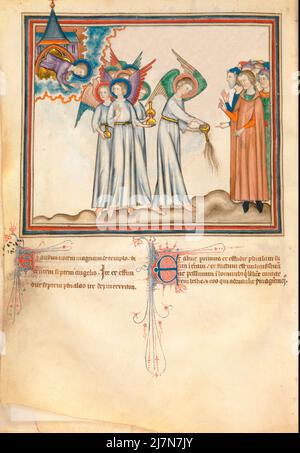 Et audivi vocem magnam de templo · di
centem septem angelis · Ite et effun
dite septem phialas ire dei in terram
Et abiit primus et effudit phialam su
am in terram · et factum est vulnus
et pessimum in homines habent caracte
rem bestie · et eos qui adorant imaginem
alamy stock photo
2J7N7JY